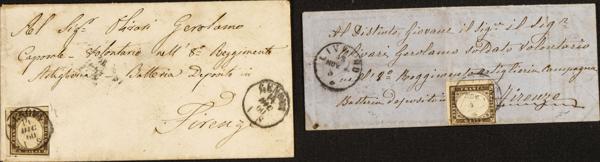 Al Sigr Chiari Gerolamo
Caporale Volontario nell' 8° Reggimento
Artiglieria Batteria Deposito in
Firenze
GENOVA
DIC
60
Al Distinto Giovane il sigr il sigr
Chiari Gerolamo soldato Volontario
nel 8° Reggimento Artiglieria Campagna
Batteria deposito in Firenze
LIVORNO